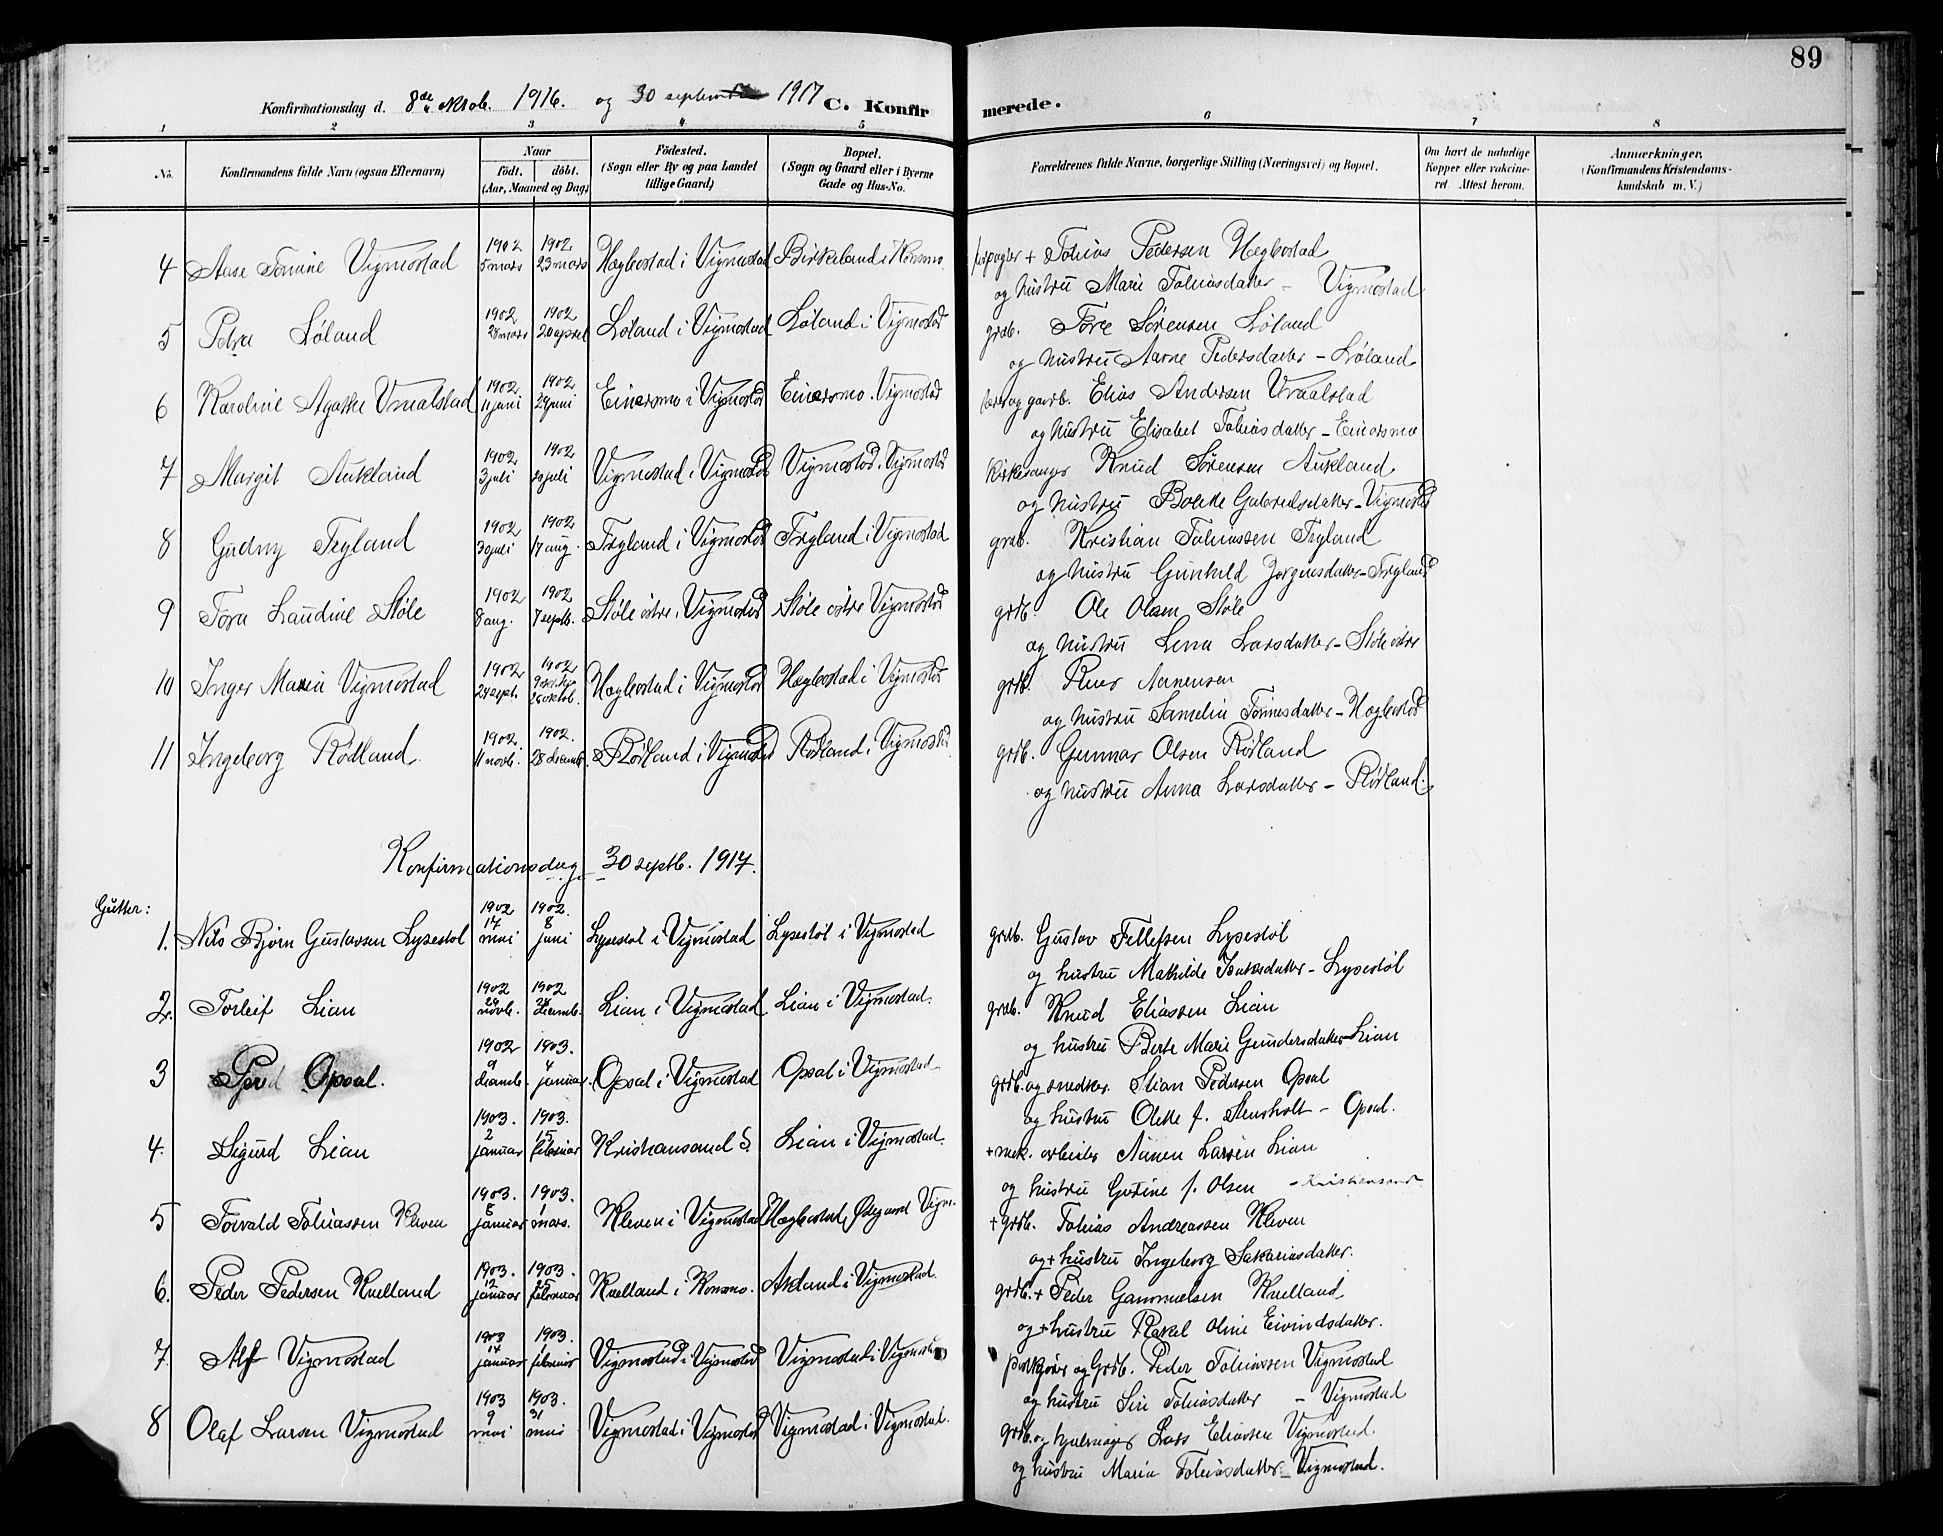 89
Konfirmationsdag d. 8de oktob. 1916. og 30 septem 1917 C. Konfirmerede.
1 2 3 4 5 6 7 8
No. Konfirmandens fulde Navn (ogsaa Efternavn) Naar födt. döbt. (Aar, Maaned og Dag) Födested. (Sogn eller By og paa Landet tillige Gaard) Bopæl. (Sogn og Gaard eller i Byerne Gade og Hus-No. Forældrenes fulde Navne, borgerlige Stilling (Næringsvei) og Bopæl. Om havt de naturlige Kopper eller vakcineret. Attest herom. Anmærkninger. (Konfirmandens Kristendomskundskab m. V.)
4 Aase Tomine Vigmostad 1902 5 mars 1902 23 mars Hægbostad i Vigmostad Birkeland i Konsmo + Tobias Pedersen Hegbostad
og hustru Marie Tobiasdatter – Vigmostad
5 Petra Løland 1902 28 mars 1902 20 april Løland i Vigmostad Løland i Vigmostad grdb. Tore Sørensen Løland
og hustru Aarne Pedersdatter – Løland
6 Karoline Agathe Vraalstad 1902 11 juni 1902 29 juni Einersmo i Vigmostad Einersmo. Vigmostad og gaardb. Elias Andersen Vraalstad
og hustru Elisabet Tobiasdatter – Einersmo
7 Margit Aukland 1902 3 juli 1902 20 juli Vigmostad i Vigmostad Vigmostad i Vigmostad Kirkesanger Knud Sørensen Aukland
og hustru Bolette Gabrielsdatter – Vigmostad
8 Gudny Trygland 1902 30 juli 1902 17 aug. Trygland i Vigmostad Trygland i Vigmostad grdb. Kristian Tobiassen Trygland
og hustru Gunhild Jørgensdatter – Trygland
9 Tora Laudine Støle 1902 8 aug. 1902 7 septb. Støle østre i Vigmostad Støle østre Vigmostad grdb. Ole Olsen Støle
og hustru Lena Larsdatter – Støle østre
10 Inger Marie Vigmostad 1902 24 sept. 1902 26 oktob. Hægbostad i Vigmostad Hægbostad i Vigmostad grdb. Aanensen
og hustru Sameline Tønnesdatter – Hægbostad
11 Ingeborg Rødland 1902 11 novb. 1902. 28 decemb. Rødland i Vigmostad Rødland i Vigmostad grdb. Gunnar Olsen Rødland
og hustru Anna Larsdatter – Rødland.
Konfirmationsdag 30 septb. 1917.
Gutter:
1. Nils Bjørn Gustavsen Lysestøl 1902 17 mai 1902. 8 juni Lysestøl i Vigmostad Lysestøl i Vigmostad grdb. Gustav Tellefsen Lysestøl
og hustru Mathilde – Lysestøl
2. Torleif Lian 1902 29 novb. 1902 28 decemb. Lian i Vigmostad Lian i Vigmostad. grdb. Knud Eliassen Lian
og hustru Berte Marie Gundersdatter – Lian
3 Opsal. 1902 9 decemb. 1903. 4 januar. Opsal i Vigmostad Opsal i Vigmostad grdb. og snedker. Stian Pedersen Opsal
og hustru Olette f. Stensholt – Opsal.
4. Sigurd Lian 1903. 2 januar 1903. 15 februar Kristiansand S. Lian i Vigmostad. + mek. arbeider Aanen Larsen Lian
og hustru Gurine f. Olsen – Kristiansand
5 Torvald Tobiassen Kleven 1903. 8 januar 1903. 1 mars. Kleven i Vigmostad Hægbostad, Østgaard Vigm. + grdb. Tobias Andreassen Kleven
og + hustru Ingeborg Sakariasdatter.
6. Peder Pedersen Kvelland 1903. 12 januar 1903. 25 februar Kvelland i Konsmo. Aukland i Vigmostad. grdb. + Peder Gammuelsen Kvelland
og + hustru Rakel Oline Eivindsdatter.
7. Alf Vigmostad 1903 14 januar 1903. 1 februar Vigmostad i Vigmostad Vigmostad i Vigmostad og Grdb. Peder Tobiassen Vigmostad
og hustru Siri Tobiasdatter – Vigmostad
8 Olaf Larsen Vigmostad 1903 9 mai 1903. 31 mai Vigmostad i Vigmostad Vigmostad i Vigmostad. grdb. og hjulmager Lars Eliassen Vigmostad.
og hustru Maria Tobiasdatter – Vigmostad.